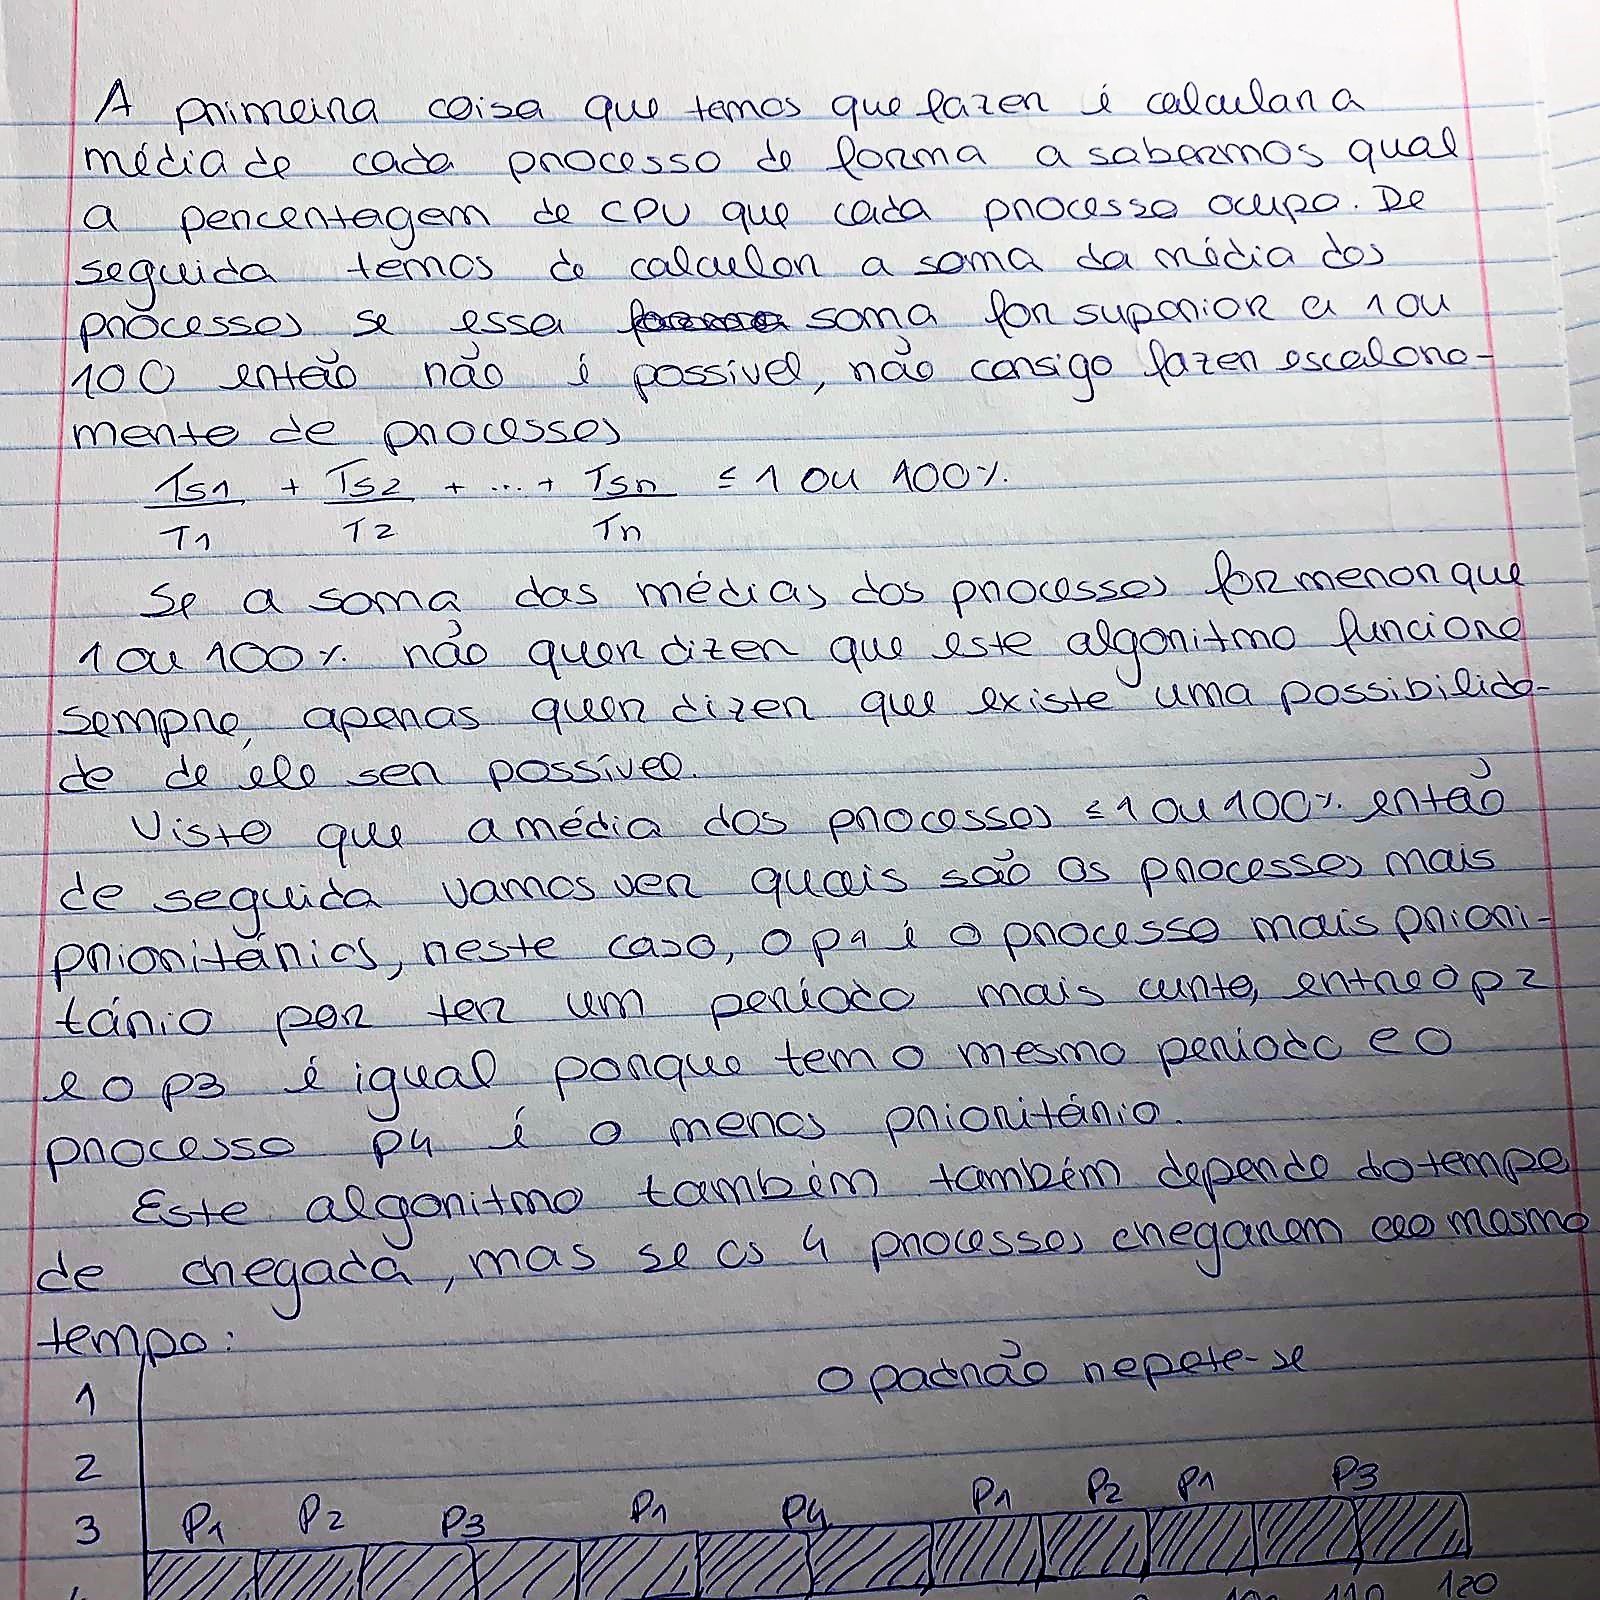 A primeira coisa que temos que fazer é calcular a
média de cada processo de forma a sabermos qual
a percentagem de CPU que cada processo ocupa. De
seguida temos de calcular a soma da média dos
processos se essa soma for superior a 1 ou
100 então não é possível, não consigo fazer escalona-
mento de processos
Ts1/T1 + Ts2/T2 + ... + Tsn/Tn ≤ 1 ou 100%.
Se a soma das médias dos processos for menor que
1 ou 100% não quer dizer que este algoritmo funciona
sempre, apenas quer dizer que existe uma possibilida-
de de ele ser possível.
Visto que a média dos processos ≤ 1 ou 100% então
de seguida vamos ver quais são os processos mais
prioritários, neste caso, o p1 é o processo mais priori-
tário por ter um período mais curto, entre o p2
e o p3 é igual porque tem o mesmo período e o
processo p4 é o menos prioritário.
Este algoritmo também também depende do tempo
de chegada, mas se os 4 processos chegarem ao mesmo
tempo:
O padrão repete-se
1
2
3 P1 P2 P3 P1 P4 P1 P2 P1 P3
110 120